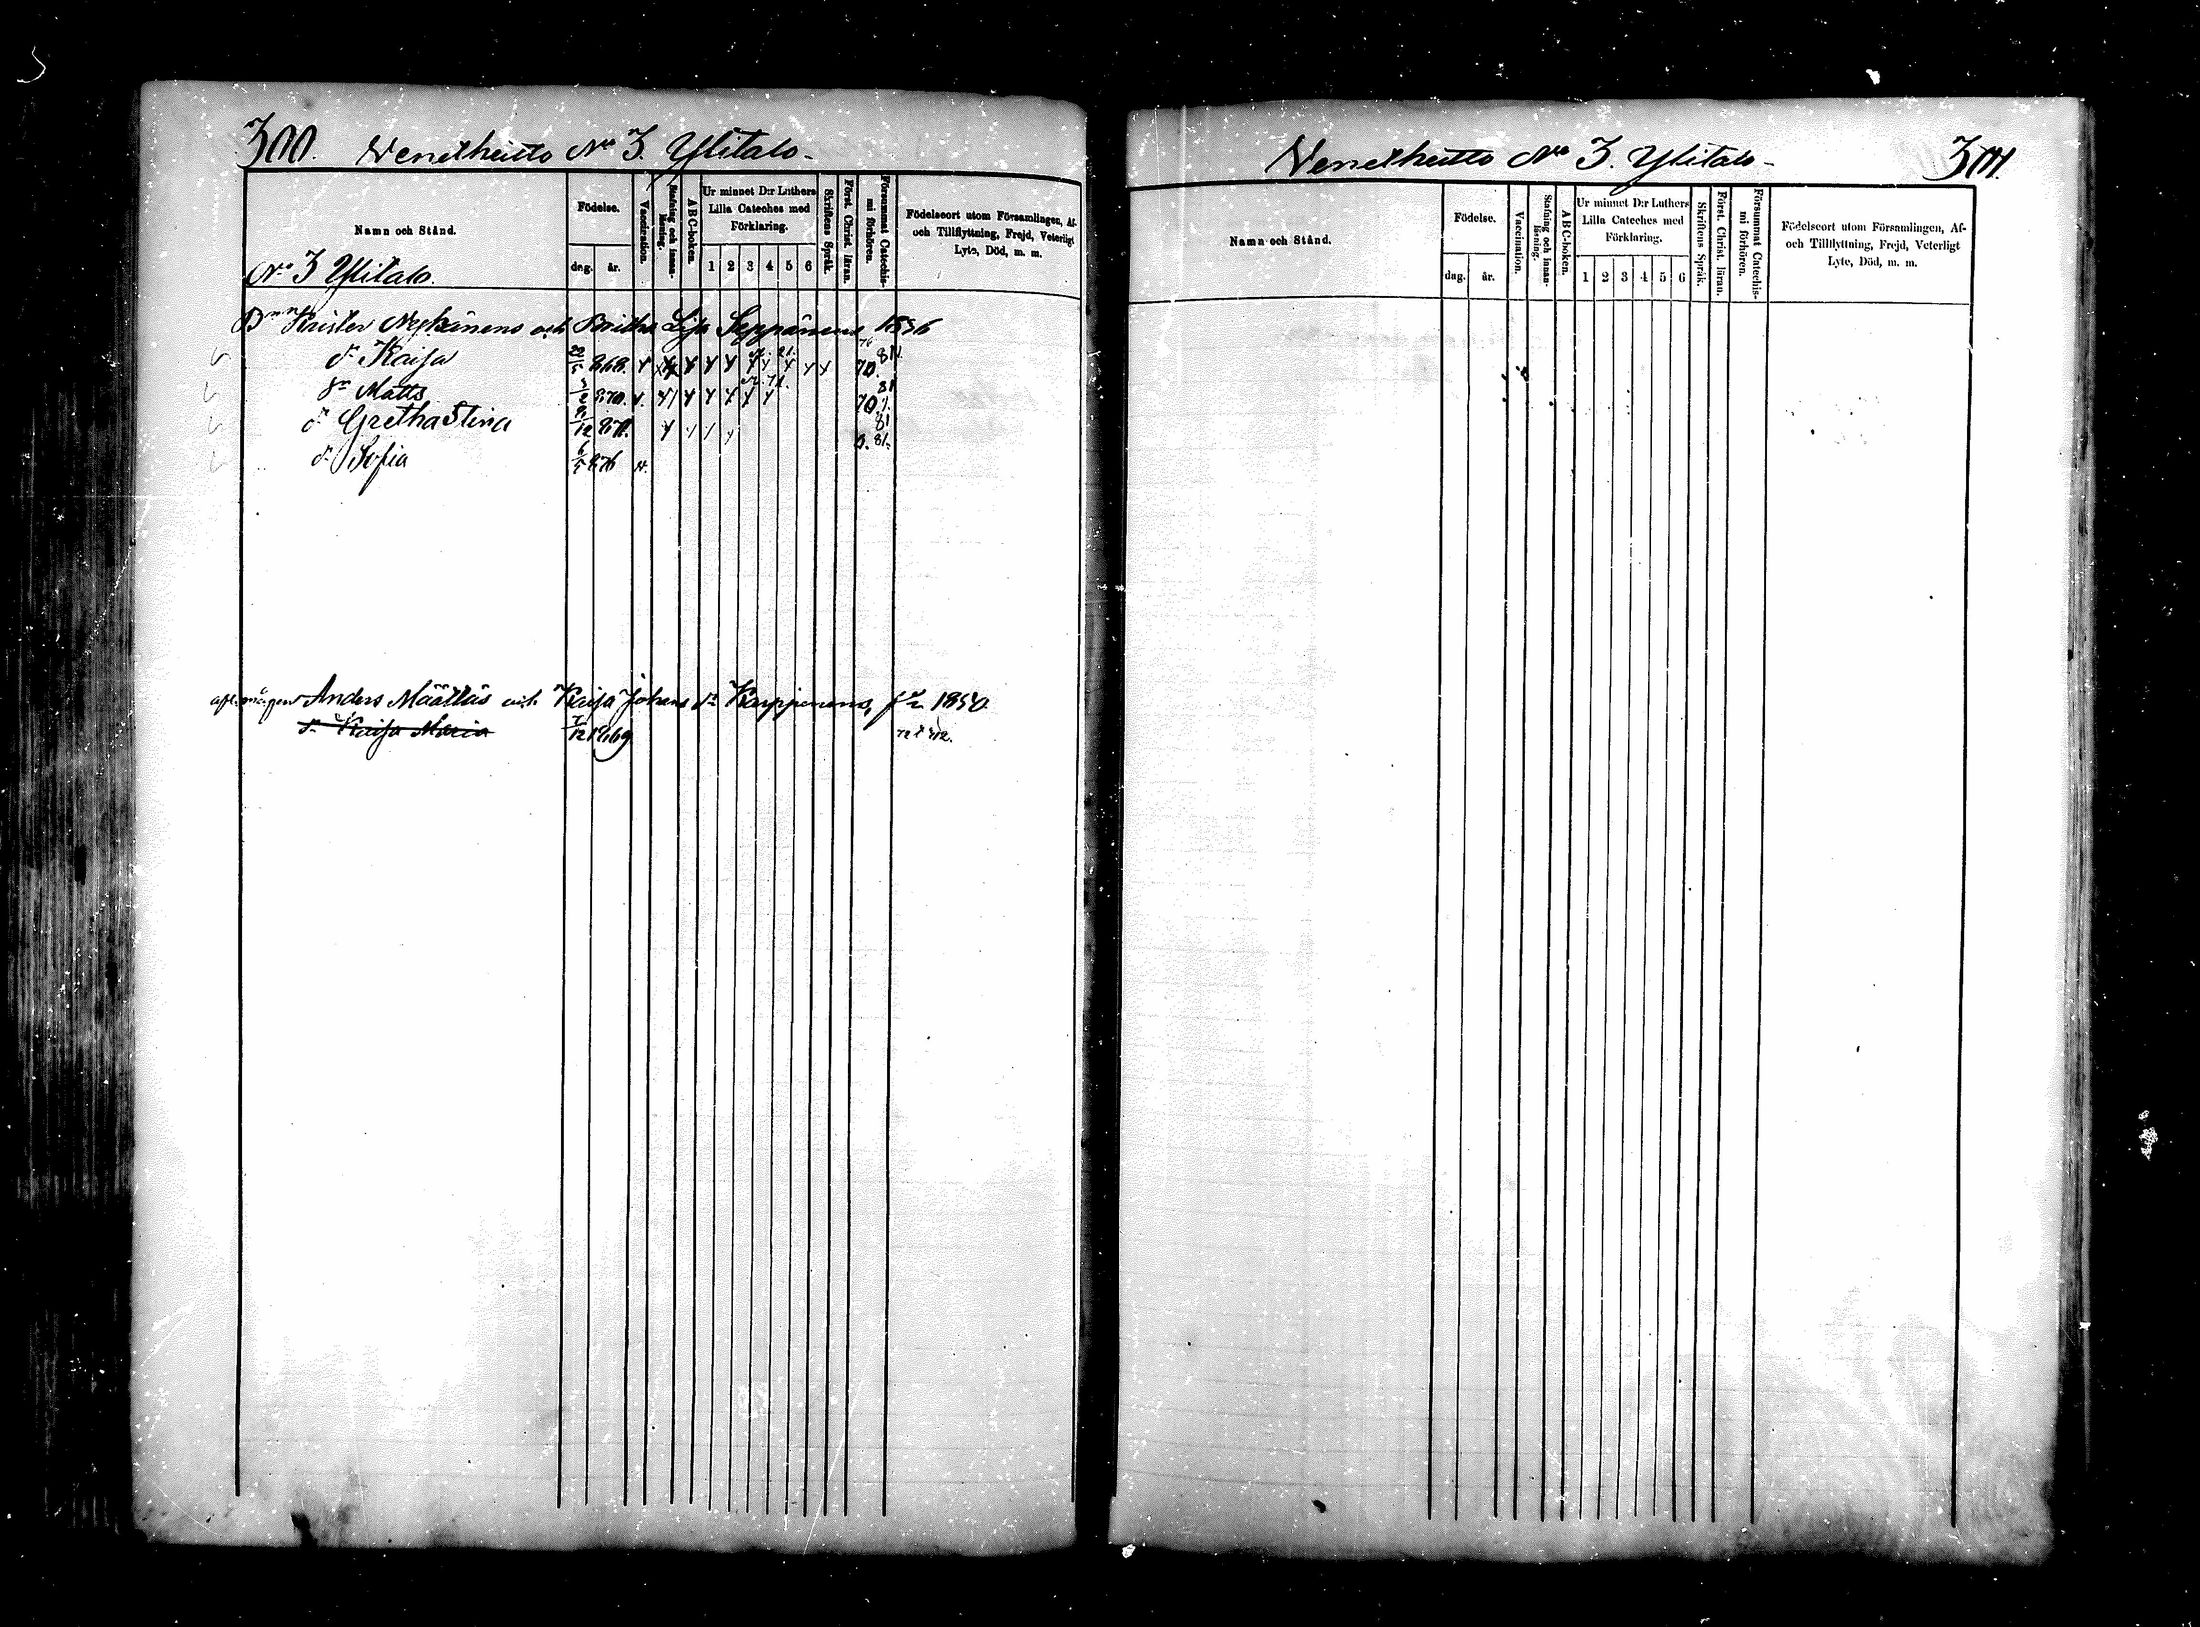 300. Venetheitto No 3. Ylitalo
Namn och Stånd.
Födelse.
dag. år.
Vaccination.
Stafning och innan-
läsning.
ABC-boken.
Ur minnet D:r Luthers
Lilla Cateches med
Förklaring.
1 2 3 4 5 6
Skriftens Språk.
Först. Christ. läran.
Försummat Catechis-
mi förhören.
Födelseort utom Församlingen, Af-
och Tillflyttning, Frejd, Veterligt
Lyte, Död, m. m.
No 3 Ylitalo.
och Britha Lisa Seppänens 1836
dr Kaisa 868.
Matts 870.
dr Gretha Stina
dr Sofia 6/5 876
Anders Määttäs och Kaisa Johans dr Karppinens, 1850
dr Kaisa Maria 1869
Venetheitto No 3. Ylitalo 301.
Namn och Stånd.
Födelse.
dag. år.
Vaccination.
Stafning och innan-
läsning.
ABC-boken.
Ur minnet D:r Luthers
Lilla Cateches med
Förklaring.
1 2 3 4 5 6
Skriftens Språk.
Först. Christ. läran.
Försummat Catechis-
mi förhören.
Födelseort utom Församlingen, Af-
och Tillflyttning, Frejd, Veterligt
Lyte, Död, m. m.